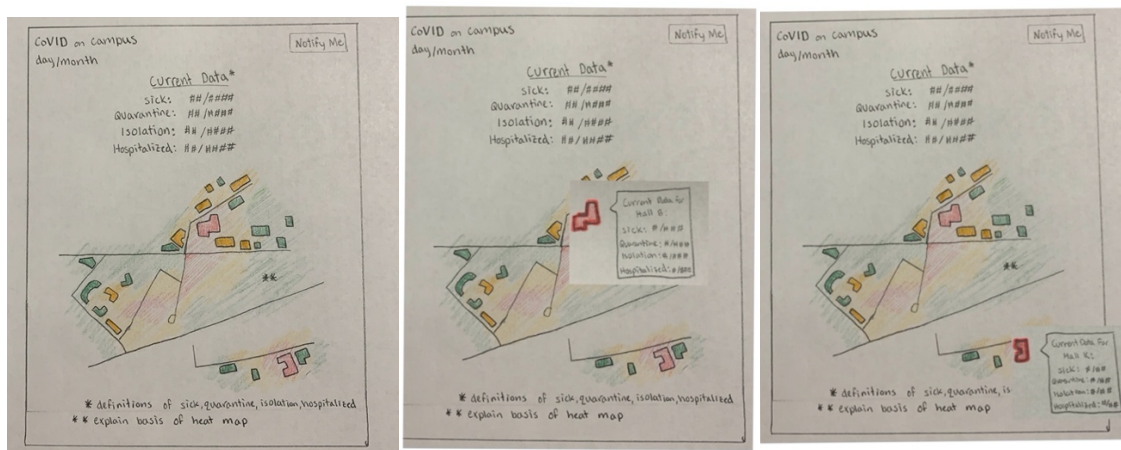 COVID on campus
Notify Me
day/month
Current Data*
Sick: ##/####
Quarantine: ##/####
Isolation: ##/####
Hospitalized: ##/####
**
* definitions of sick, quarantine, isolation, hospitalized
** explain basis of heat map
COVID on campus
Notify Me
day/month
Current Data*
Sick: ##/####
Quarantine: ##/####
Isolation: ##/####
Hospitalized: ##/####
Current Data for
Hall B:
Sick: #/###
Quarantine: #/###
Isolation: #/###
Hospitalized: #/###
* definitions of sick, quarantine, isolation, hospitalized
** explain basis of heat map
COVID on campus
Notify Me
day/month
Current Data*
Sick: ##/####
Quarantine: ##/####
Isolation: ##/####
Hospitalized: ##/####
**
Current Data For
Hall K:
Sick: #/##
Quarantine: #/##
Isolation: #/##
Hospitalized: #/##
* definitions of sick, quarantine, is
** explain basis of heat map